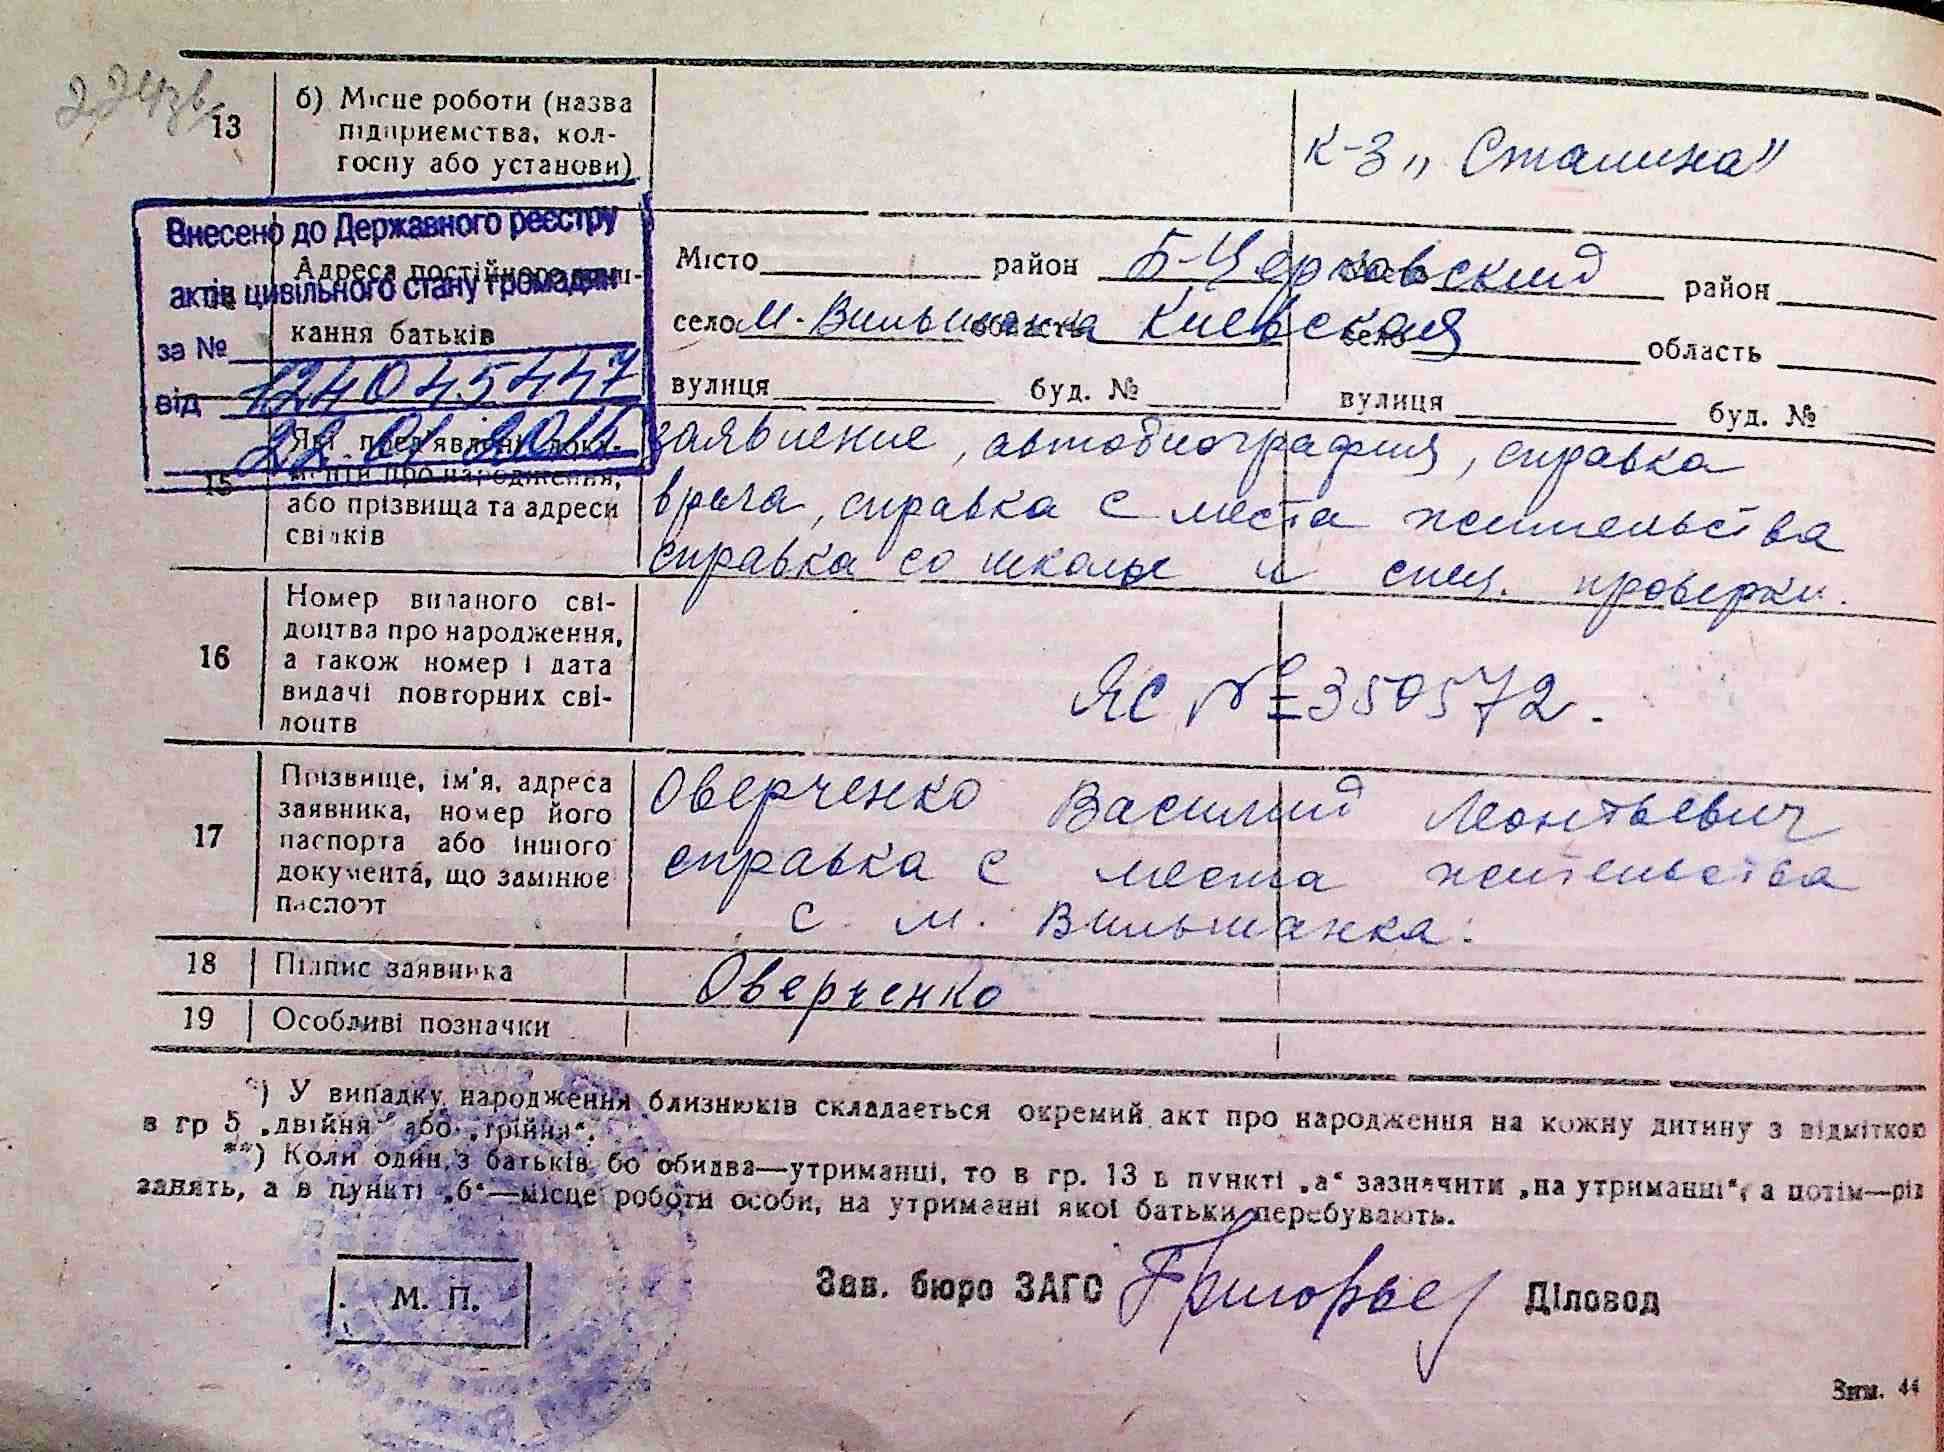 13
б) Місце роботи (назва
підприємства, кол-
госпу або установи)
к-з „Сталина"
Внесено до Державного реєстру
актів цивільного стану громадян
за №
від 12404544
Адреса постійного
кання батьків
Місто район Б-Церковский район
село М. Вильшанка область Киевская село область
вулиця буд. № вулиця буд. №
15
або прізвища та адреси
свідків
заявление, автобиография, справка
врача, справка с места жительства
справка со школы и спец. проверки.
16
Номер виданого сві-
доцтва про народження,
а також номер і дата
видачі повторних сві-
доцтв
ЯС № 350572.
17
Прізвище, ім'я, адреса
заявника, номер його
паспорта або іншого
документа, що замінює
паспорт
Оверченко Василий Леонтьевич
справка с места жительства
с. М. Вильшанка.
18 Підпис заявника Оверченко
19 Особливі позначки
*) У випадку народження близнюків складається окремий акт про народження на кожну дитину з відміткою
в гр 5 „двійня" або „трійня".
**) Коли один з батьків бо обидва—утриманці, то в гр. 13 в пункті „а" зазначити „на утриманні", а потім—рід
занять, а в пункті „б"—місце роботи особи, на утриманні якої батьки перебувають.
М. П.
Зав. бюро ЗАГС Діловод
Зим. 44